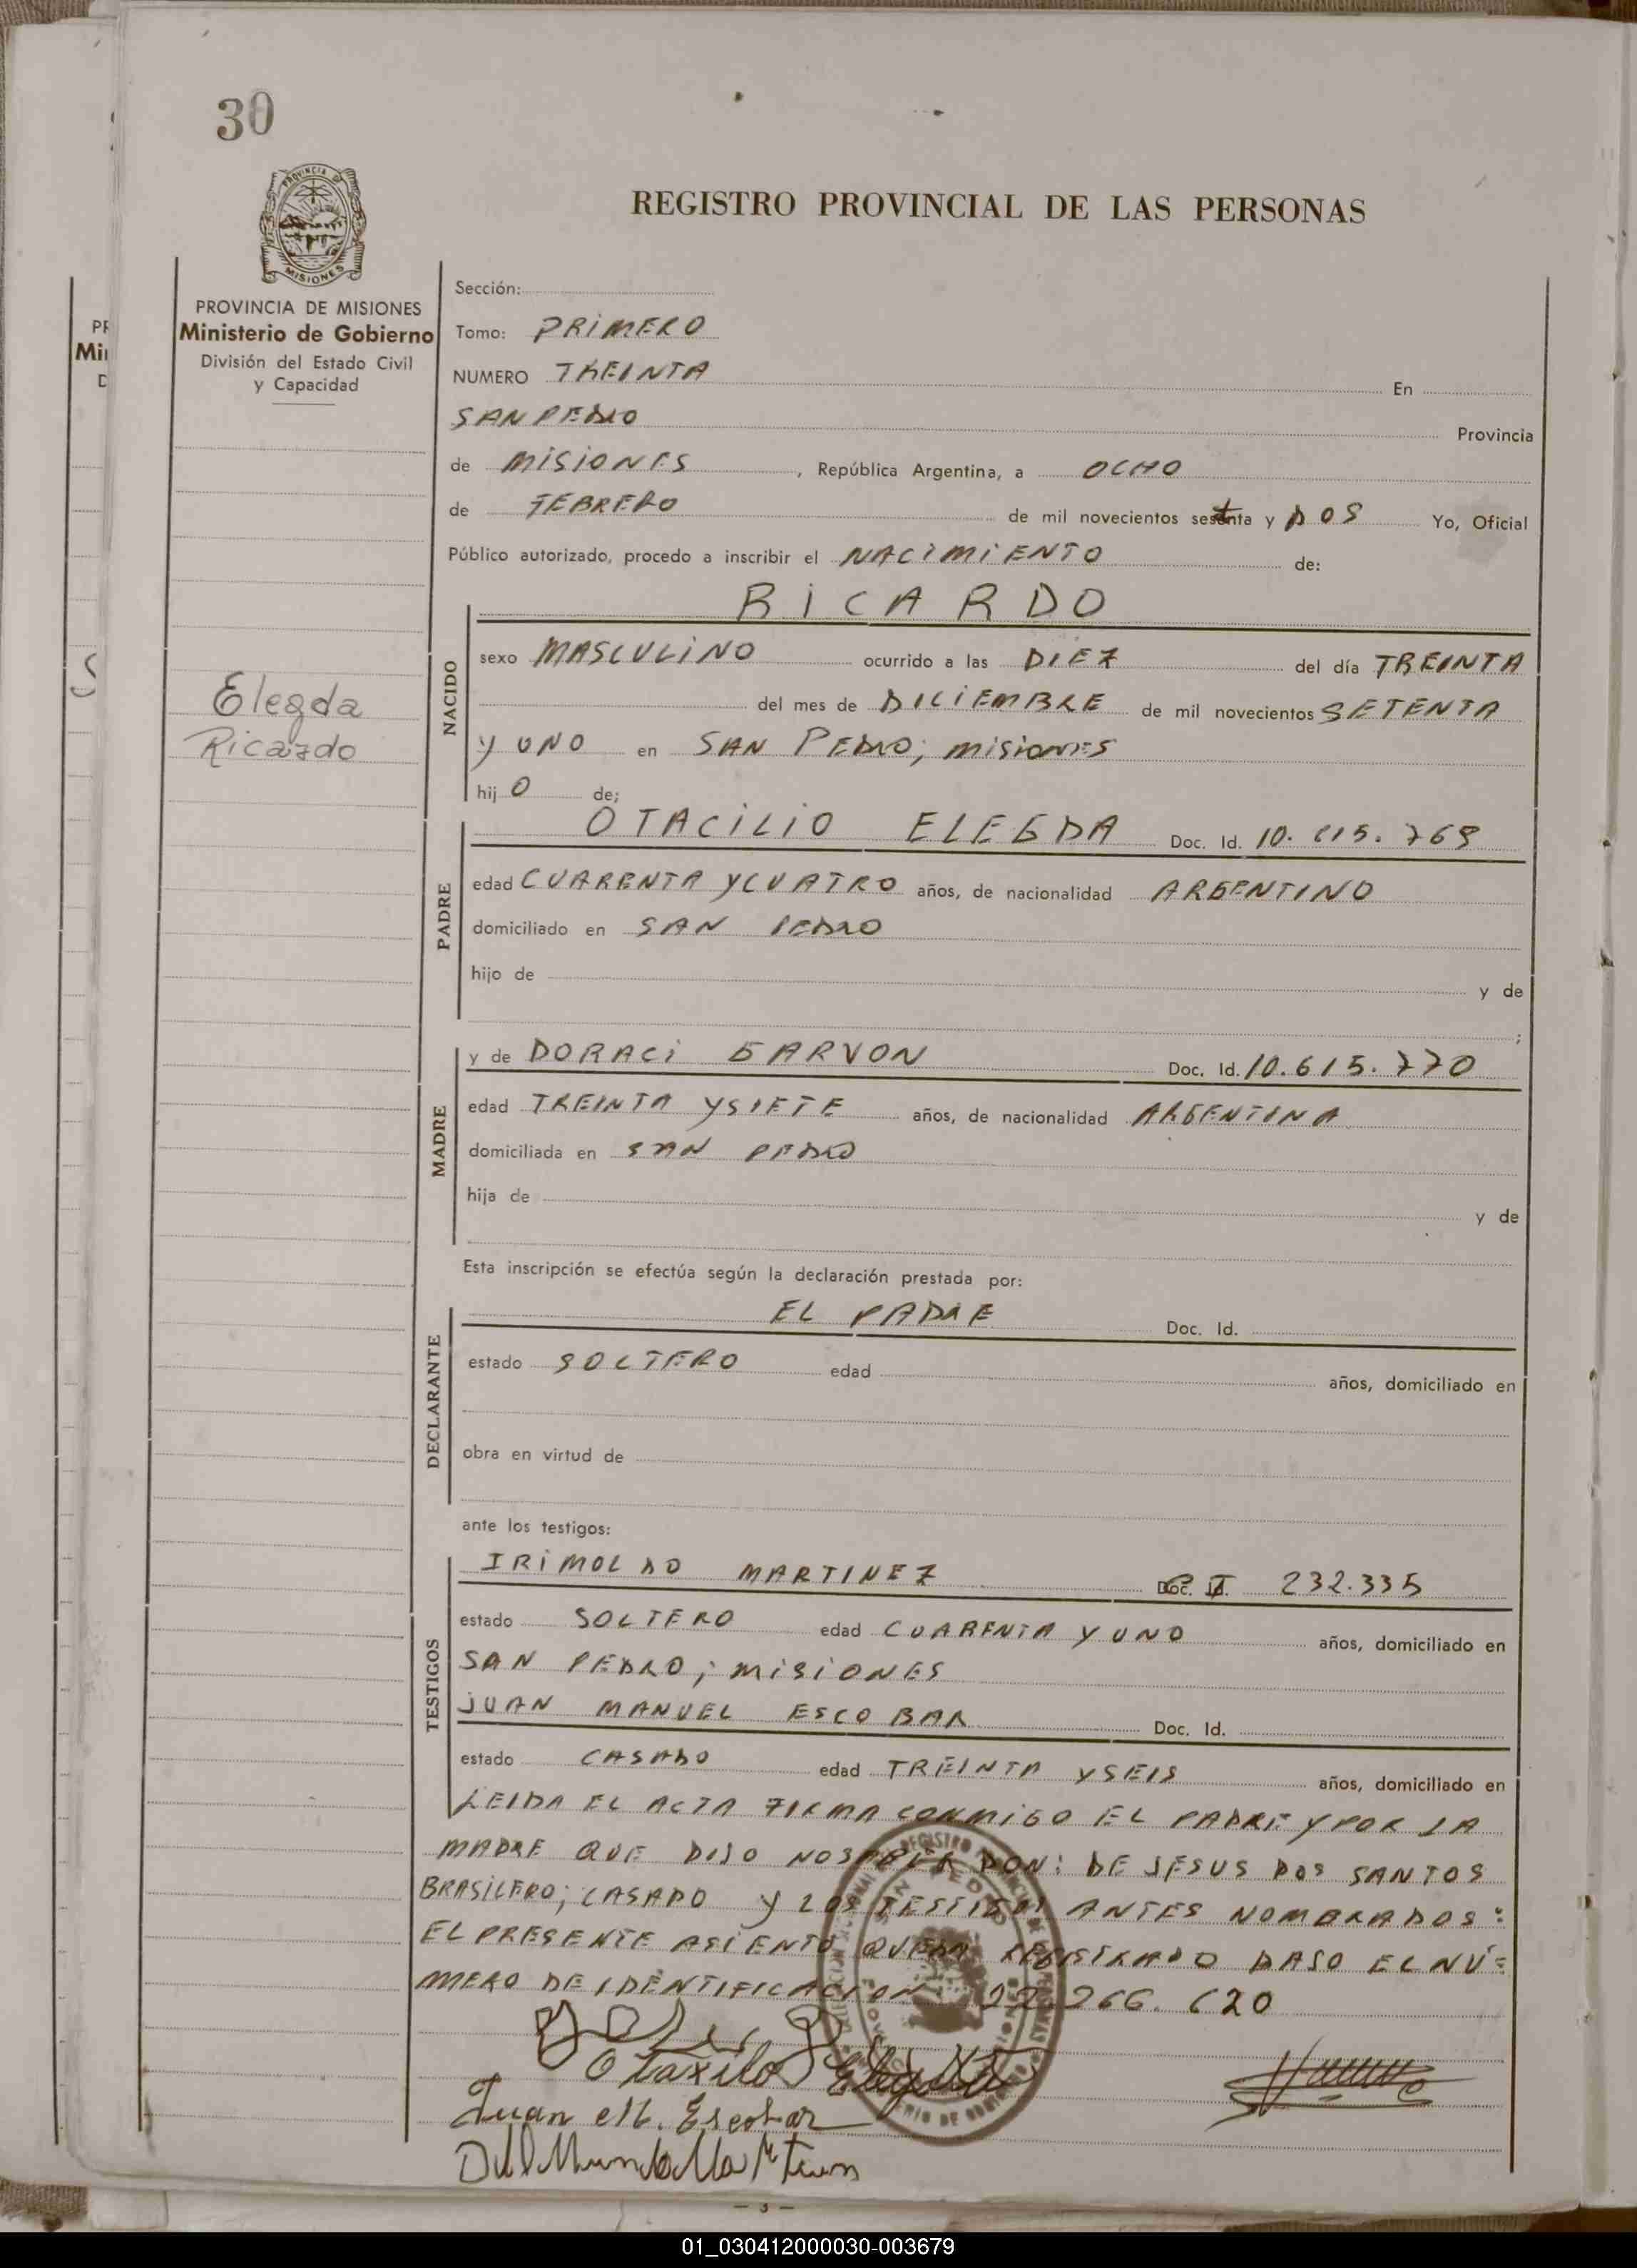 30
PROVINCIA DE
MISIONES
PROVINCIA DE MISIONES
Ministerio de Gobierno
División del Estado Civil
y Capacidad
Elegda
Ricardo
REGISTRO PROVINCIAL DE LAS PERSONAS
Sección:
Tomo: PRIMERO
NUMERO TREINTA En
SAN PEDRO Provincia
de MISIONES, República Argentina, a OCHO
de FEBRERO de mil novecientos setenta y DOS Yo, Oficial
Público autorizado, procedo a inscribir el NACIMIENTO de:
NACIDO
RICARDO
sexo MASCULINO ocurrido a las DIEZ del día TREINTA
del mes de DICIEMBRE de mil novecientos SETENTA
Y UNO en SAN PEDRO; MISIONES
hij O de;
PADRE
OTACILIO ELEGDA Doc. Id. 10.615.769
edad CUARENTA Y CUATRO años, de nacionalidad ARGENTINO
domiciliado en SAN PEDRO
hijo de y de
;
MADRE
y de DORACI GARVON Doc. Id. 10.615.770
edad TREINTA Y SIETE años, de nacionalidad ARGENTINA
domiciliada en SAN PEDRO
hija de y de
Esta inscripción se efectúa según la declaración prestada por:
DECLARANTE
EL PADRE Doc. Id.
estado SOLTERO edad años, domiciliado en
obra en virtud de
ante los testigos:
TESTIGOS
IRIMOLDO MARTINEZ C.I. 232.335
estado SOLTERO edad CUARENTA Y UNO años, domiciliado en
SAN PEDRO; MISIONES
JUAN MANUEL ESCOBAR Doc. Id.
estado CASADO edad TREINTA Y SEIS años, domiciliado en
LEIDA EL ACTA FIRMA CONMIGO EL PADRE Y POR LA
MADRE QUE DIJO NO SABER DON: DE JESUS DOS SANTOS
BRASILERO; CASADO Y LOS TESTIGOS ANTES NOMBRADOS:
EL PRESENTE ASIENTO QUEDA REGISTRADO BAJO EL NÚ=
MERO DE IDENTIFICACION 22.266.620
Otaxilo Elegda
Juan M. Escobar
— 3 —
01_030412000030-003679